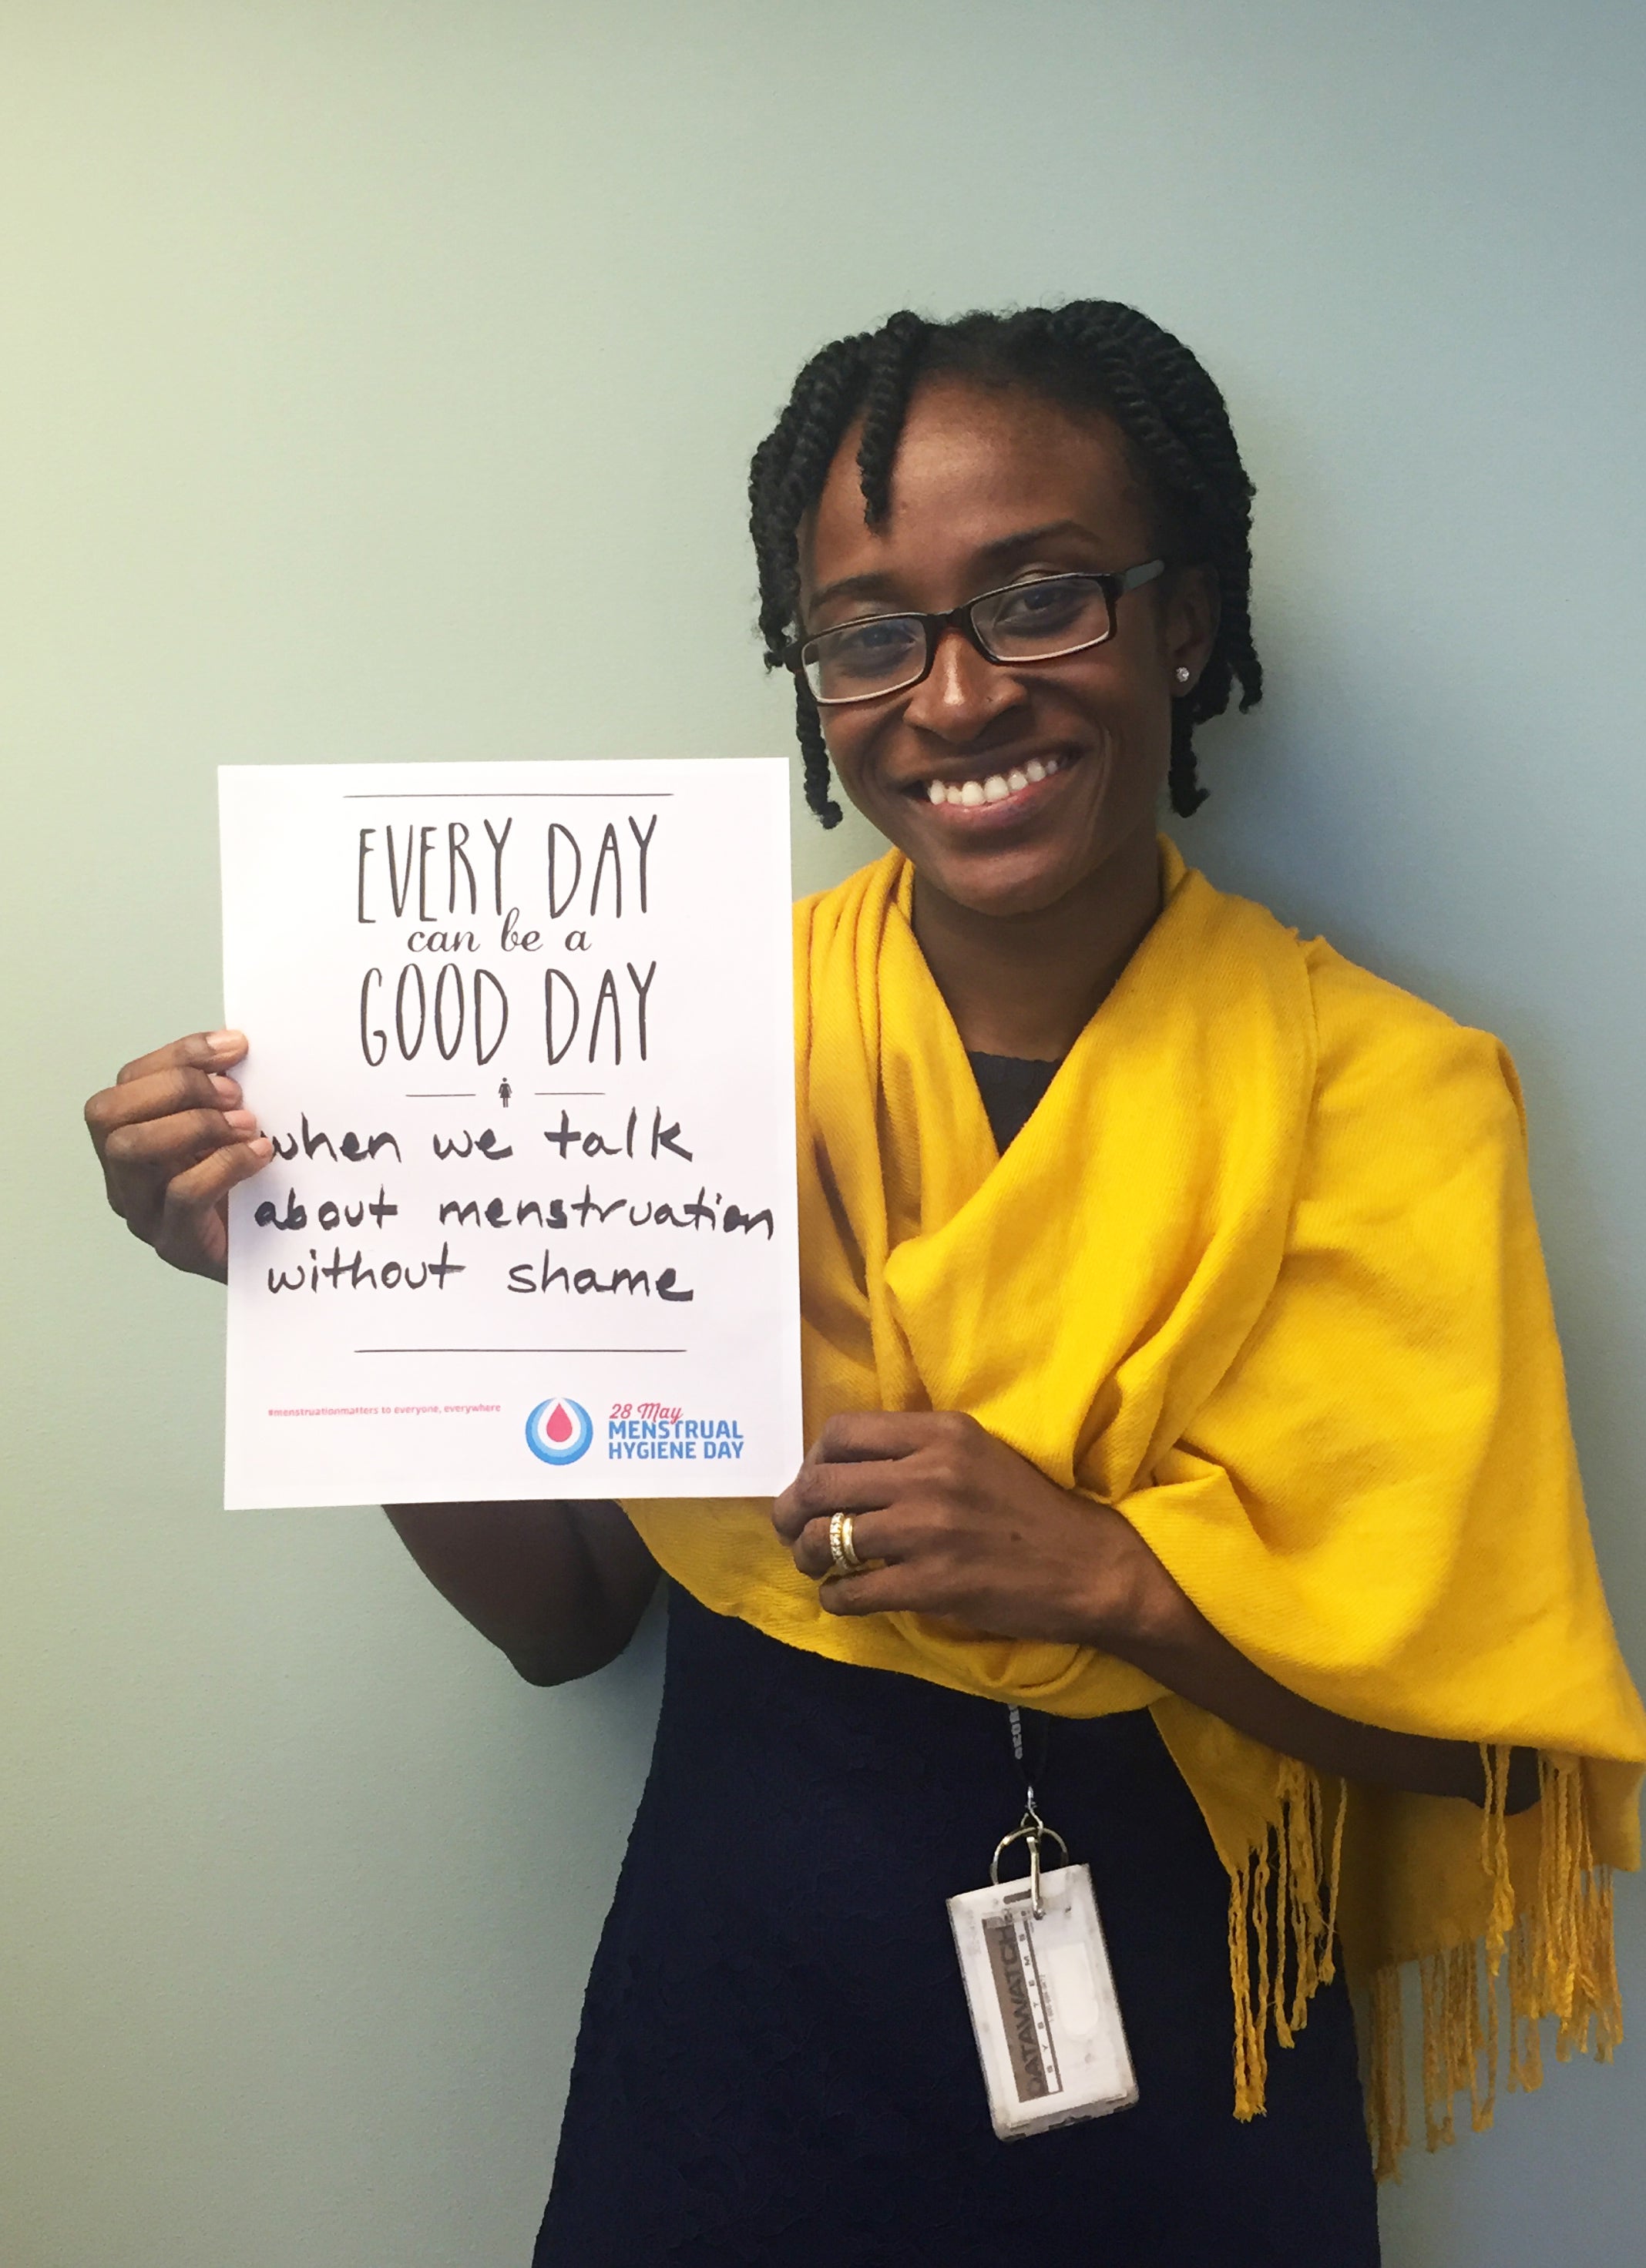 EVERY DAY
can be a
GOOD DAY
when we talk
about menstruation
without shame
#menstruationmatters to everyone, everywhere
28 May
MENSTRUAL
HYGIENE DAY
DATAWATCH
SYSTEMS